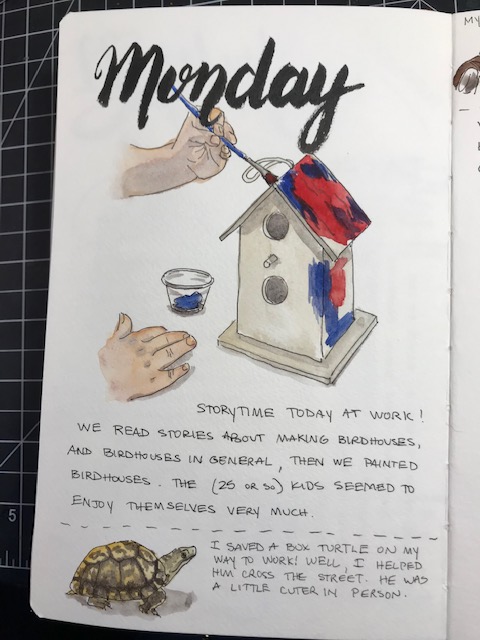 Monday
STORYTIME TODAY AT WORK!
WE READ STORIES ABOUT MAKING BIRDHOUSES,
AND BIRDHOUSES IN GENERAL, THEN WE PAINTED
BIRDHOUSES. THE (25 OR SO) KIDS SEEMED TO
ENJOY THEMSELVES VERY MUCH.
I SAVED A BOX TURTLE ON MY
WAY TO WORK! WELL, I HELPED
HIM CROSS THE STREET. HE WAS
A LITTLE CUTER IN PERSON.
MY
5